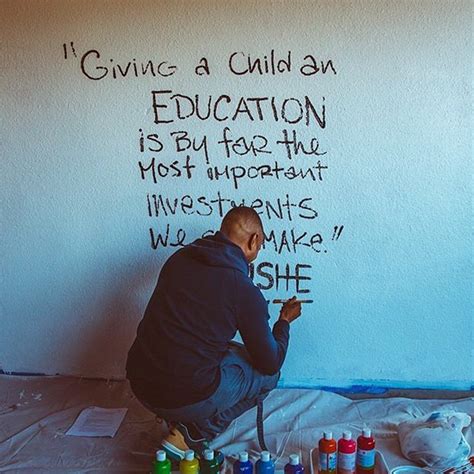 "Giving a Child an
EDUCATION
is By far the
Most important
investments
We MAKE."